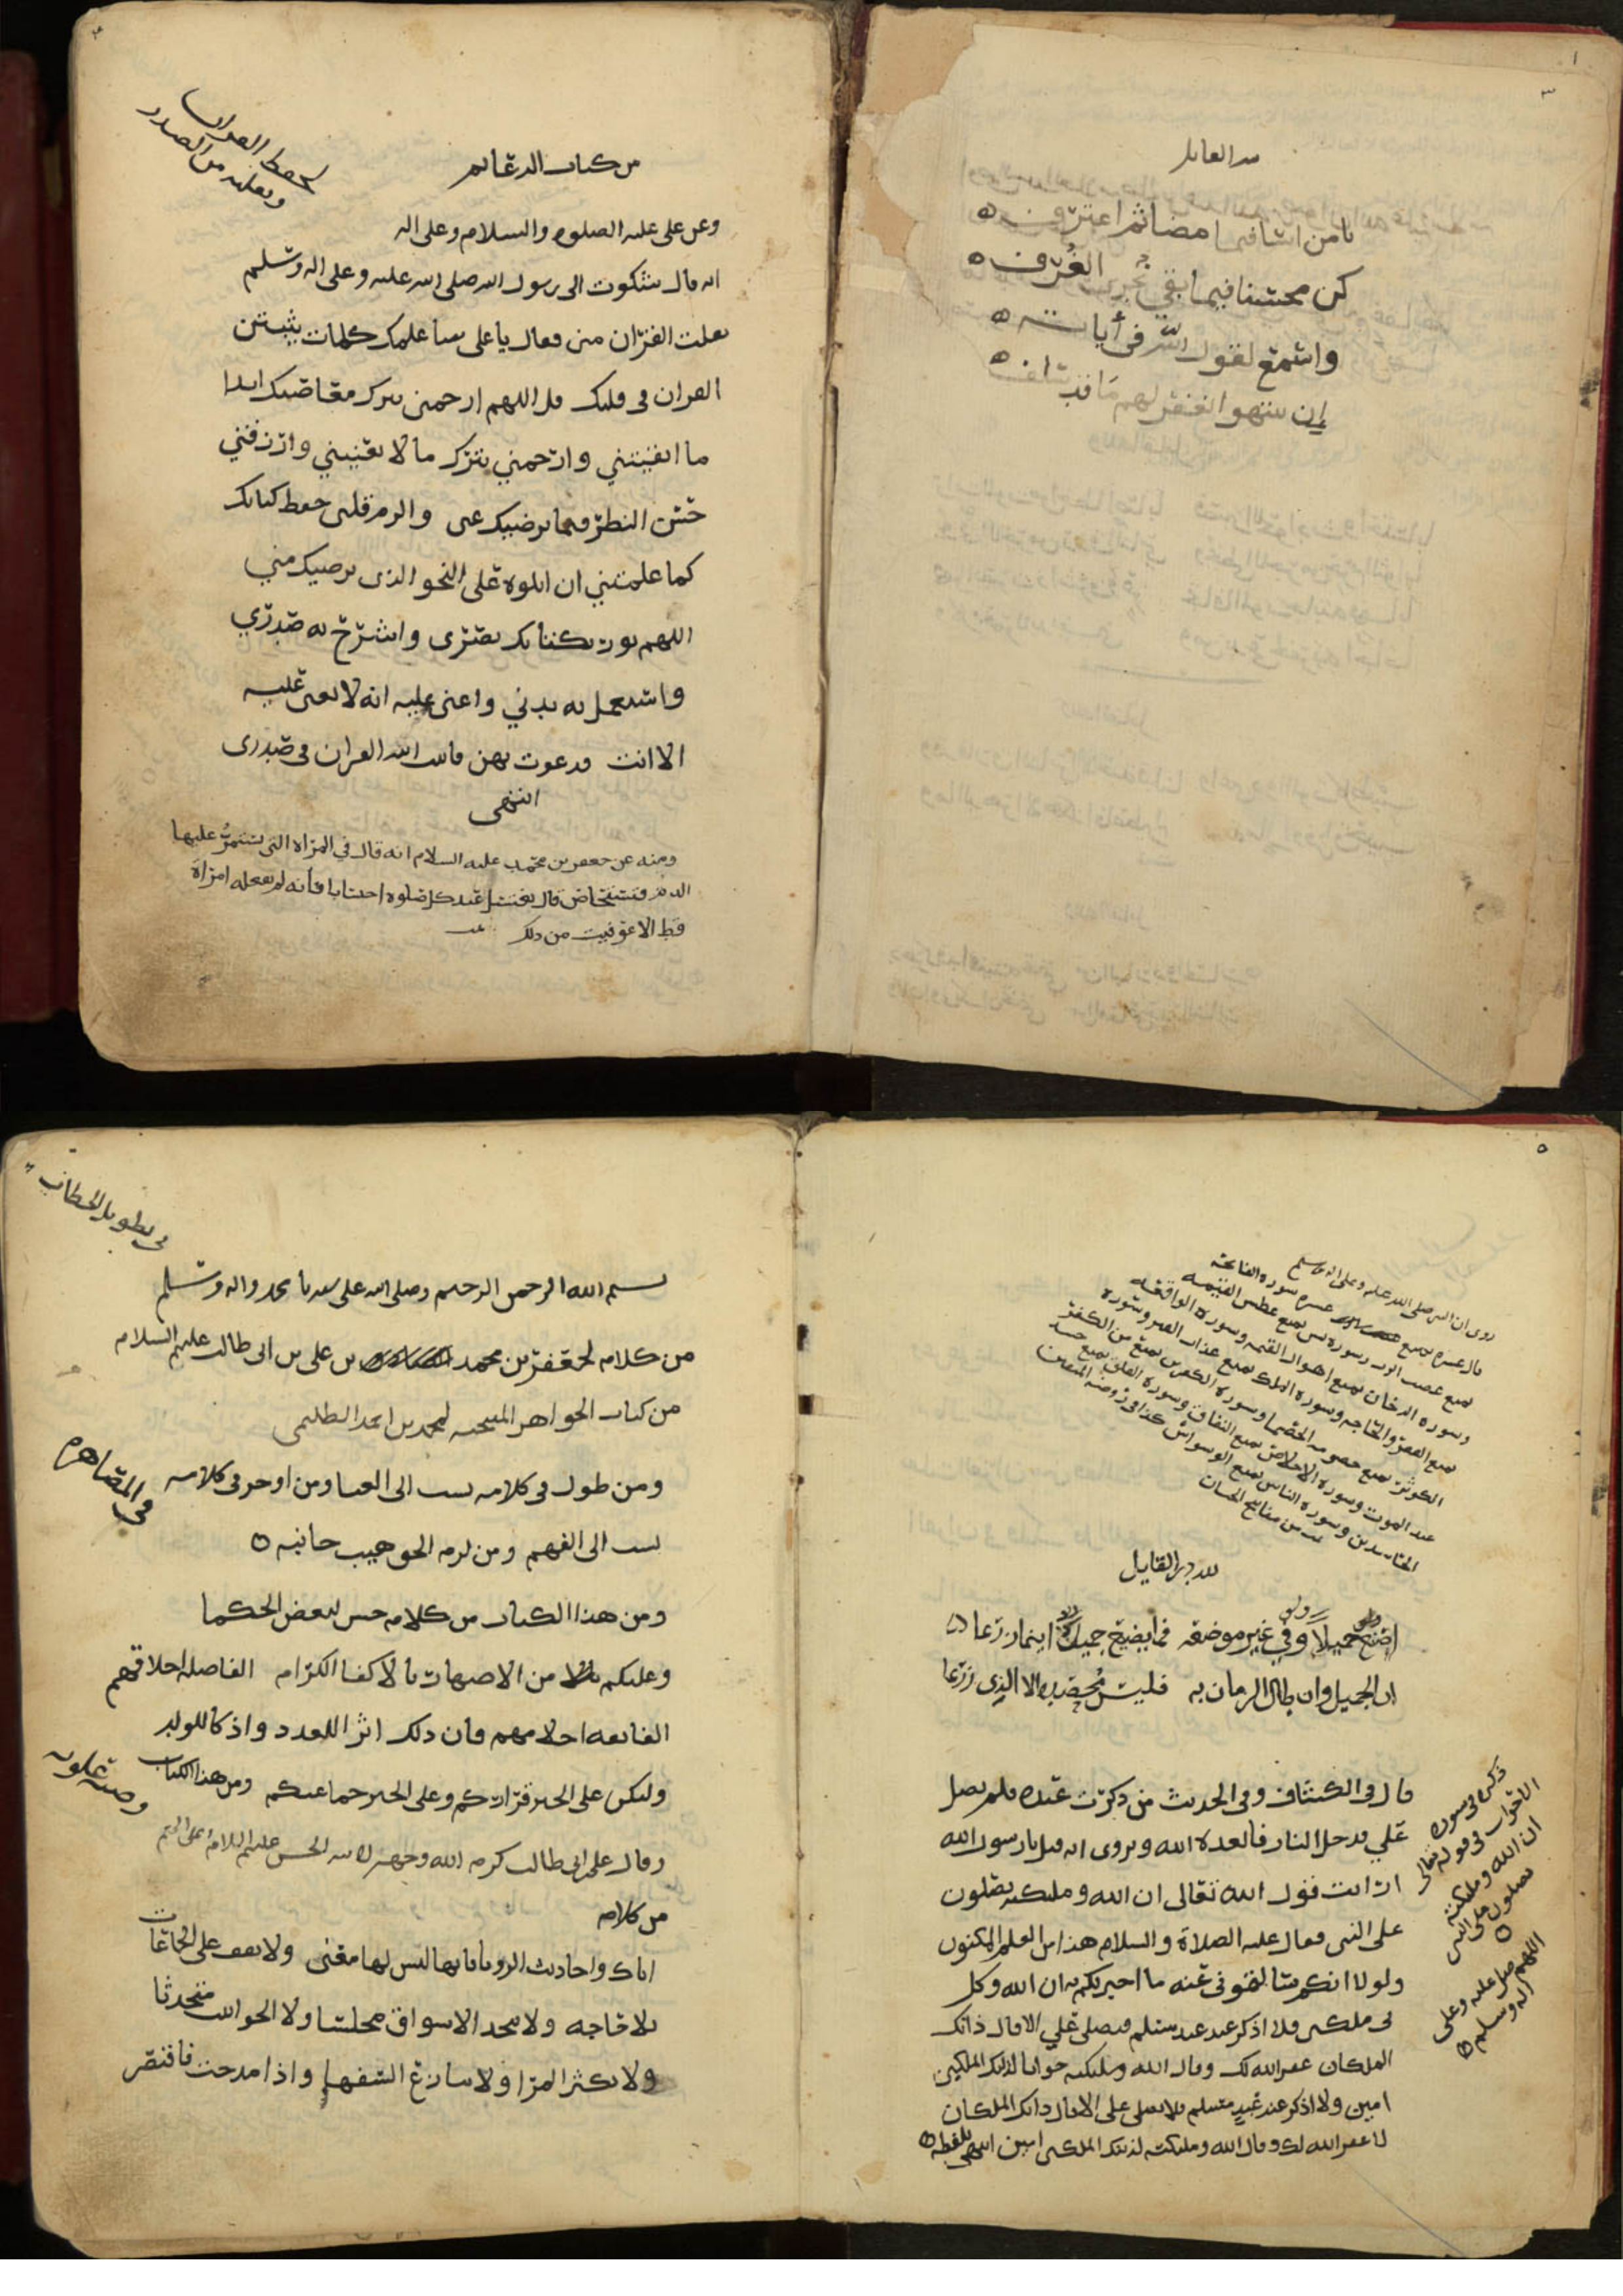 ١
٣
لله القايل
يا من اشا فيما مضا ثم اعترف
كن محسنا فيما بقي تجري الغرف
واسمع لقول الله في أياته
إن ينتهوا يغفر لهم ما قد سلف
٤
لحفظ القران
من الصدر
من كتاب الدعايم
وعن علي عليه الصلوه والسلام وعلى اله
انه قال شكوت الى رسول الله صلى الله عليه وعلى اله وسلم
تفلت القران مني فقال يا علي سأعلمك كلمات يثبتن
القران في قلبك قل اللهم ارحمني بترك معاصيك ابدا
ما ابقيتني وارحمني بترك ما لا يعنيني وارزقني
حسن النظر فيما يرضيك عني والزم قلبي حفظ كتابك
كما علمتني ان اتلوه على النحو الذي يرضيك مني
اللهم نور بكتابك بصري واشرح به صدري
واستعمل به بدني واعني عليه انه لا يعين عليه
الا انت فدعوت بهن فاثبت الله القران في صدري
انتهى
ومنه عن جعفر بن محمد عليه السلام انه قال في المراه التي يستمر عليها
الدم فتستحاض قال تغتسل عند كل صلوه احتسابا فأنه لم تفعله امراة
قط الا عوفيت من ذلك
٥
روي ان النبي صلى الله عليه وعلى اله وسلم
قال عشره تمنع عشره سوره الفاتحه
تمنع غضب الرب وسوره يس تمنع عطش القيمه
وسوره الدخان تمنع اهوال القيمه وسوره الواقعه
تمنع الفقر والحاجه وسوره الملك تمنع عذاب القبر وسوره
الكوثر تمنع خصومه الخصما وسوره الكفرين تمنع من الكفر
عند الموت وسوره الاخلاص تمنع النفاق وسوره الفلق تمنع حسد
الحاسدين وسوره الناس تمنع الوسواس كذا في روضه المتقين
لله در القايل
اصنع جميلا وفي غير موضعه فما يضيع جميل اينما زرعا
ان الجميل وان طال الزمان به فليس محصده الا الذي زرعا
قال في الكشاف وفي الحديث من ذكرت عنده فلم يصل
علي فدخل النار فابعده الله ويروى انه قيل يا رسول الله
ارايت قول الله تعالى ان الله وملئكته يصلون
على النبي فقال عليه الصلاة والسلام هذا من العلم المكنون
ولولا انكم سالتموني عنه ما اخبرتكم به ان الله وكل
لي ملكين فلا اذكر عند عبد مسلم فيصلي علي الا قال ذانك
الملكان غفر الله لك وقال الله وملئكته جوابا لذينك الملكين
امين ولا اذكر عند عبد مسلم فلا يصلي علي الا قال ذانك الملكان
لا غفر الله لك وقال الله وملئكته لذينك الملكين امين انتهى بلفظه
ذكره في سوره
الاحزاب في قوله تعالى
ان الله وملئكته
يصلون على النبي
اللهم صل عليه وعلى
اله وسلم
في تطويل الخطاب
بسم الله الرحمن الرحيم وصلى الله على سيدنا محمد واله وسلم
من كلام لجعفر بن محمد بن علي بن ابي طالب عليهم السلام
من كتاب الجواهر لمحمد بن احمد
ومن طول في كلامه نسب الى العيا ومن اوجز في كلامه
نسب الى الفهم ومن لزم الحق هيب جانبه
في المصاهره
ومن هذا الكتاب من كلام حسن لبعض الحكما
وعليكم من الاصهار بالاكفا الكرام الفاضله اخلاقهم
احلامهم فان ذلك اثر للعدد واذكا للولد
وليكن على الخير قراركم وعلى الخير جماعتكم ومن هذا الكتاب
وصيه علويه
وقال علي بن ابي طالب كرم الله وجهه لابنه الحسن عليهم السلام
من كلام
اياك واحاديث الرويا فانها ليس لها معنى ولا تقف على الجماعات
بلا حاجه ولا تتخذ الاسواق مجلسا ولا الحوانيت متحدثا
ولا تكثر المرا ولا تنازع السفها واذا مدحت فاقتصر